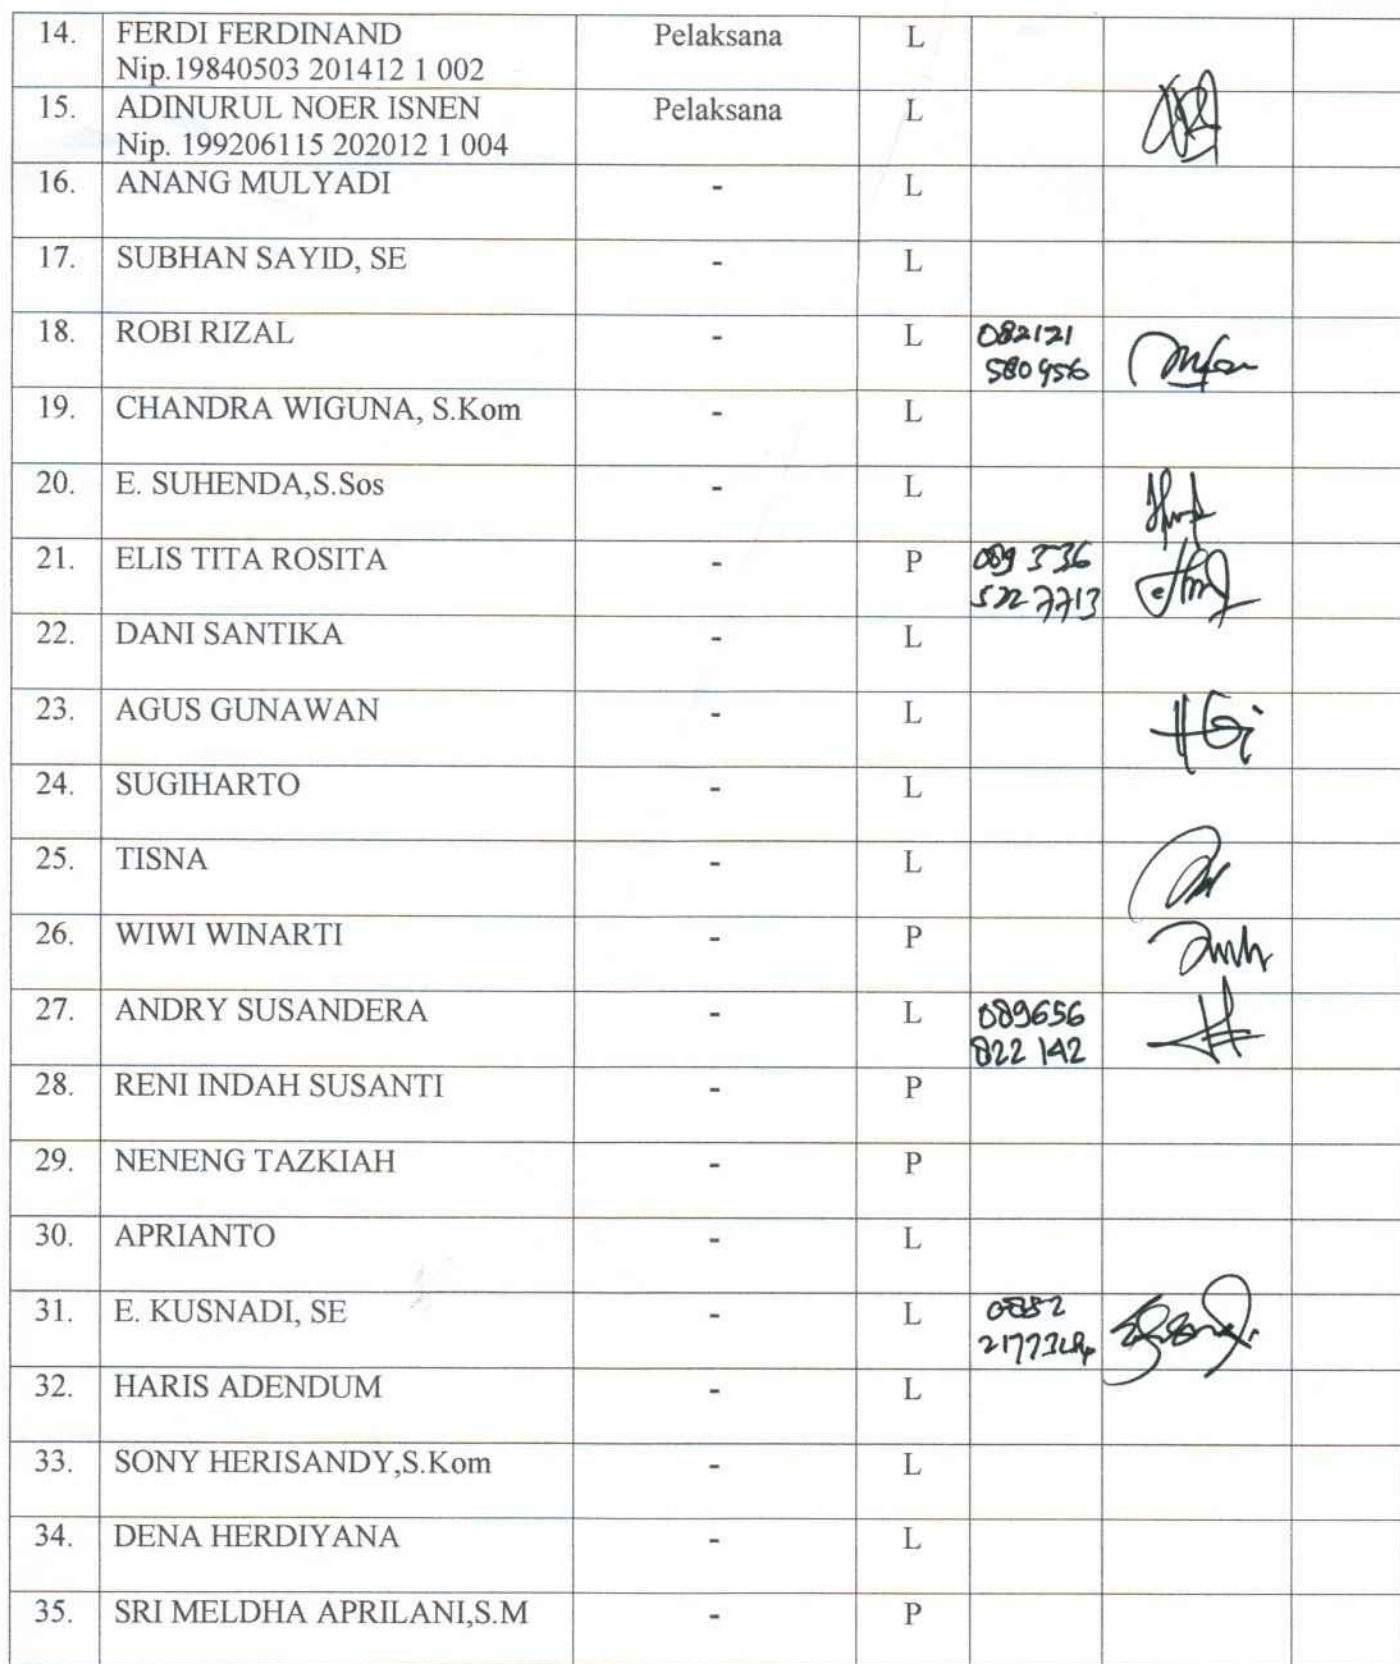 14. FERDI FERDINAND Pelaksana L
Nip.19840503 201412 1 002
15. ADINURUL NOER ISNEN Pelaksana L
Nip. 199206115 202012 1 004
16. ANANG MULYADI - L
17. SUBHAN SAYID, SE - L
18. ROBI RIZAL - L 082121
580956
19. CHANDRA WIGUNA, S.Kom - L
20. E. SUHENDA,S.Sos - L
21. ELIS TITA ROSITA - P 089 536
522 7713
22. DANI SANTIKA - L
23. AGUS GUNAWAN - L
24. SUGIHARTO - L
25. TISNA - L
26. WIWI WINARTI - P
27. ANDRY SUSANDERA - L 089656
822 142
28. RENI INDAH SUSANTI - P
29. NENENG TAZKIAH - P
30. APRIANTO - L
31. E. KUSNADI, SE - L
32. HARIS ADENDUM - L
33. SONY HERISANDY,S.Kom - L
34. DENA HERDIYANA - L
35. SRI MELDHA APRILANI,S.M - P